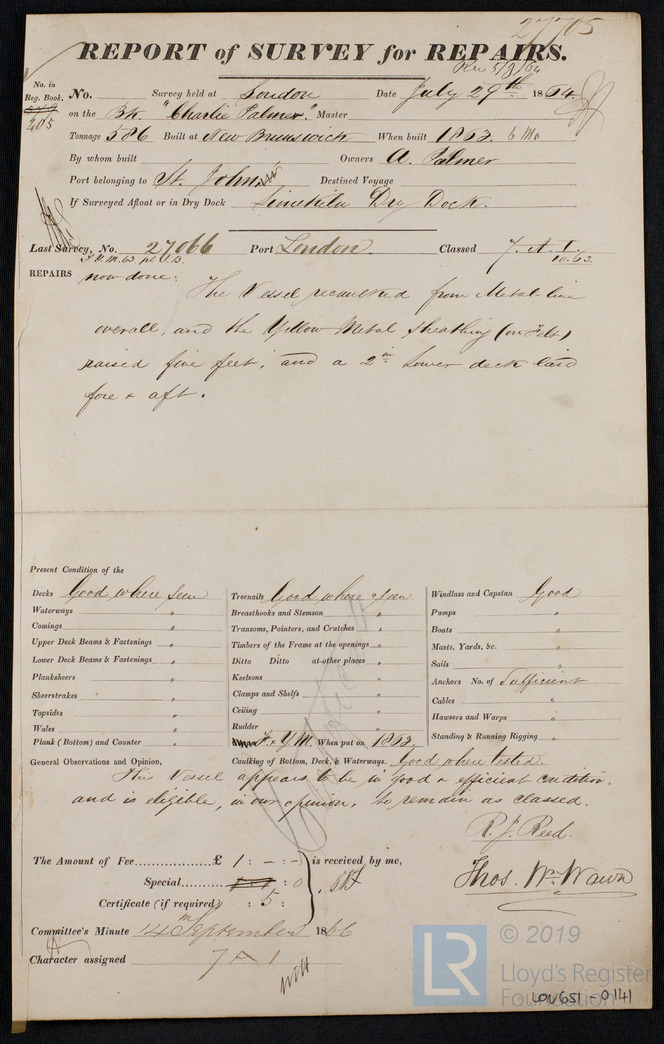 27705
REPORT of SURVEY for REPAIRS.
No. in
Reg. Book.
205
No. Survey held at London Date July 29th 1864
on the Bk. "Charlie Palmer." Master
Tonnage 586 Built at New Brunswick When built 1863. 6 Mo
By whom built Owners A. Palmer
Port belonging to St. John Destined Voyage
If Surveyed Afloat or in Dry Dock Limekiln Dry Dock.
Last Survey, No. 27066 Port London. Classed 7. A. 1.
10.63.
REPAIRS now done: The Vessel recaulked from Metal line
overall, and the Yellow Metal Sheathing (on Felt)
raised five feet; and a 2 in Lower deck laid
fore & aft.
Present Condition of the
Decks Good where seen
Waterways "
Comings "
Upper Deck Beams & Fastenings "
Lower Deck Beams & Fastenings "
Planksheers "
Sheerstrakes "
Topsides "
Wales "
Plank (Bottom) and Counter "
Treenails Good where seen
Breasthooks and Stemson "
Transoms, Pointers, and Crutches "
Timbers of the Frame at the openings "
Ditto Ditto at other places "
Keelsons "
Clamps and Shelfs "
Ceiling "
Rudder "
F. & Y.M. When put on 1863
Windlass and Capstan Good
Pumps "
Boats "
Masts, Yards, &c. "
Sails "
Anchors No. of Sufficient
Cables "
Hawsers and Warps "
Standing & Running Rigging "
General Observations and Opinion, Caulking of Bottom, Deck, & Waterways. Good where tested.
This Vessel appears to be in good & efficient condition.
and is eligible, in our opinion, to remain as classed.
R. J. Reed.
Thos. Wm. Wawn
The Amount of Fee £ 1 : - : - is received by me,
Special : 0
Certificate (if required) : 5 :
Committee's Minute 14th September 1866
Character assigned 7 A 1
LR
© 2019
Lloyd's Register
Foundation
LON651-0141